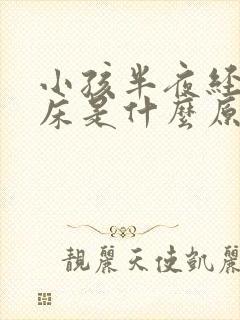 小孩半夜经
床是什麼原
靚麗天使凱麗